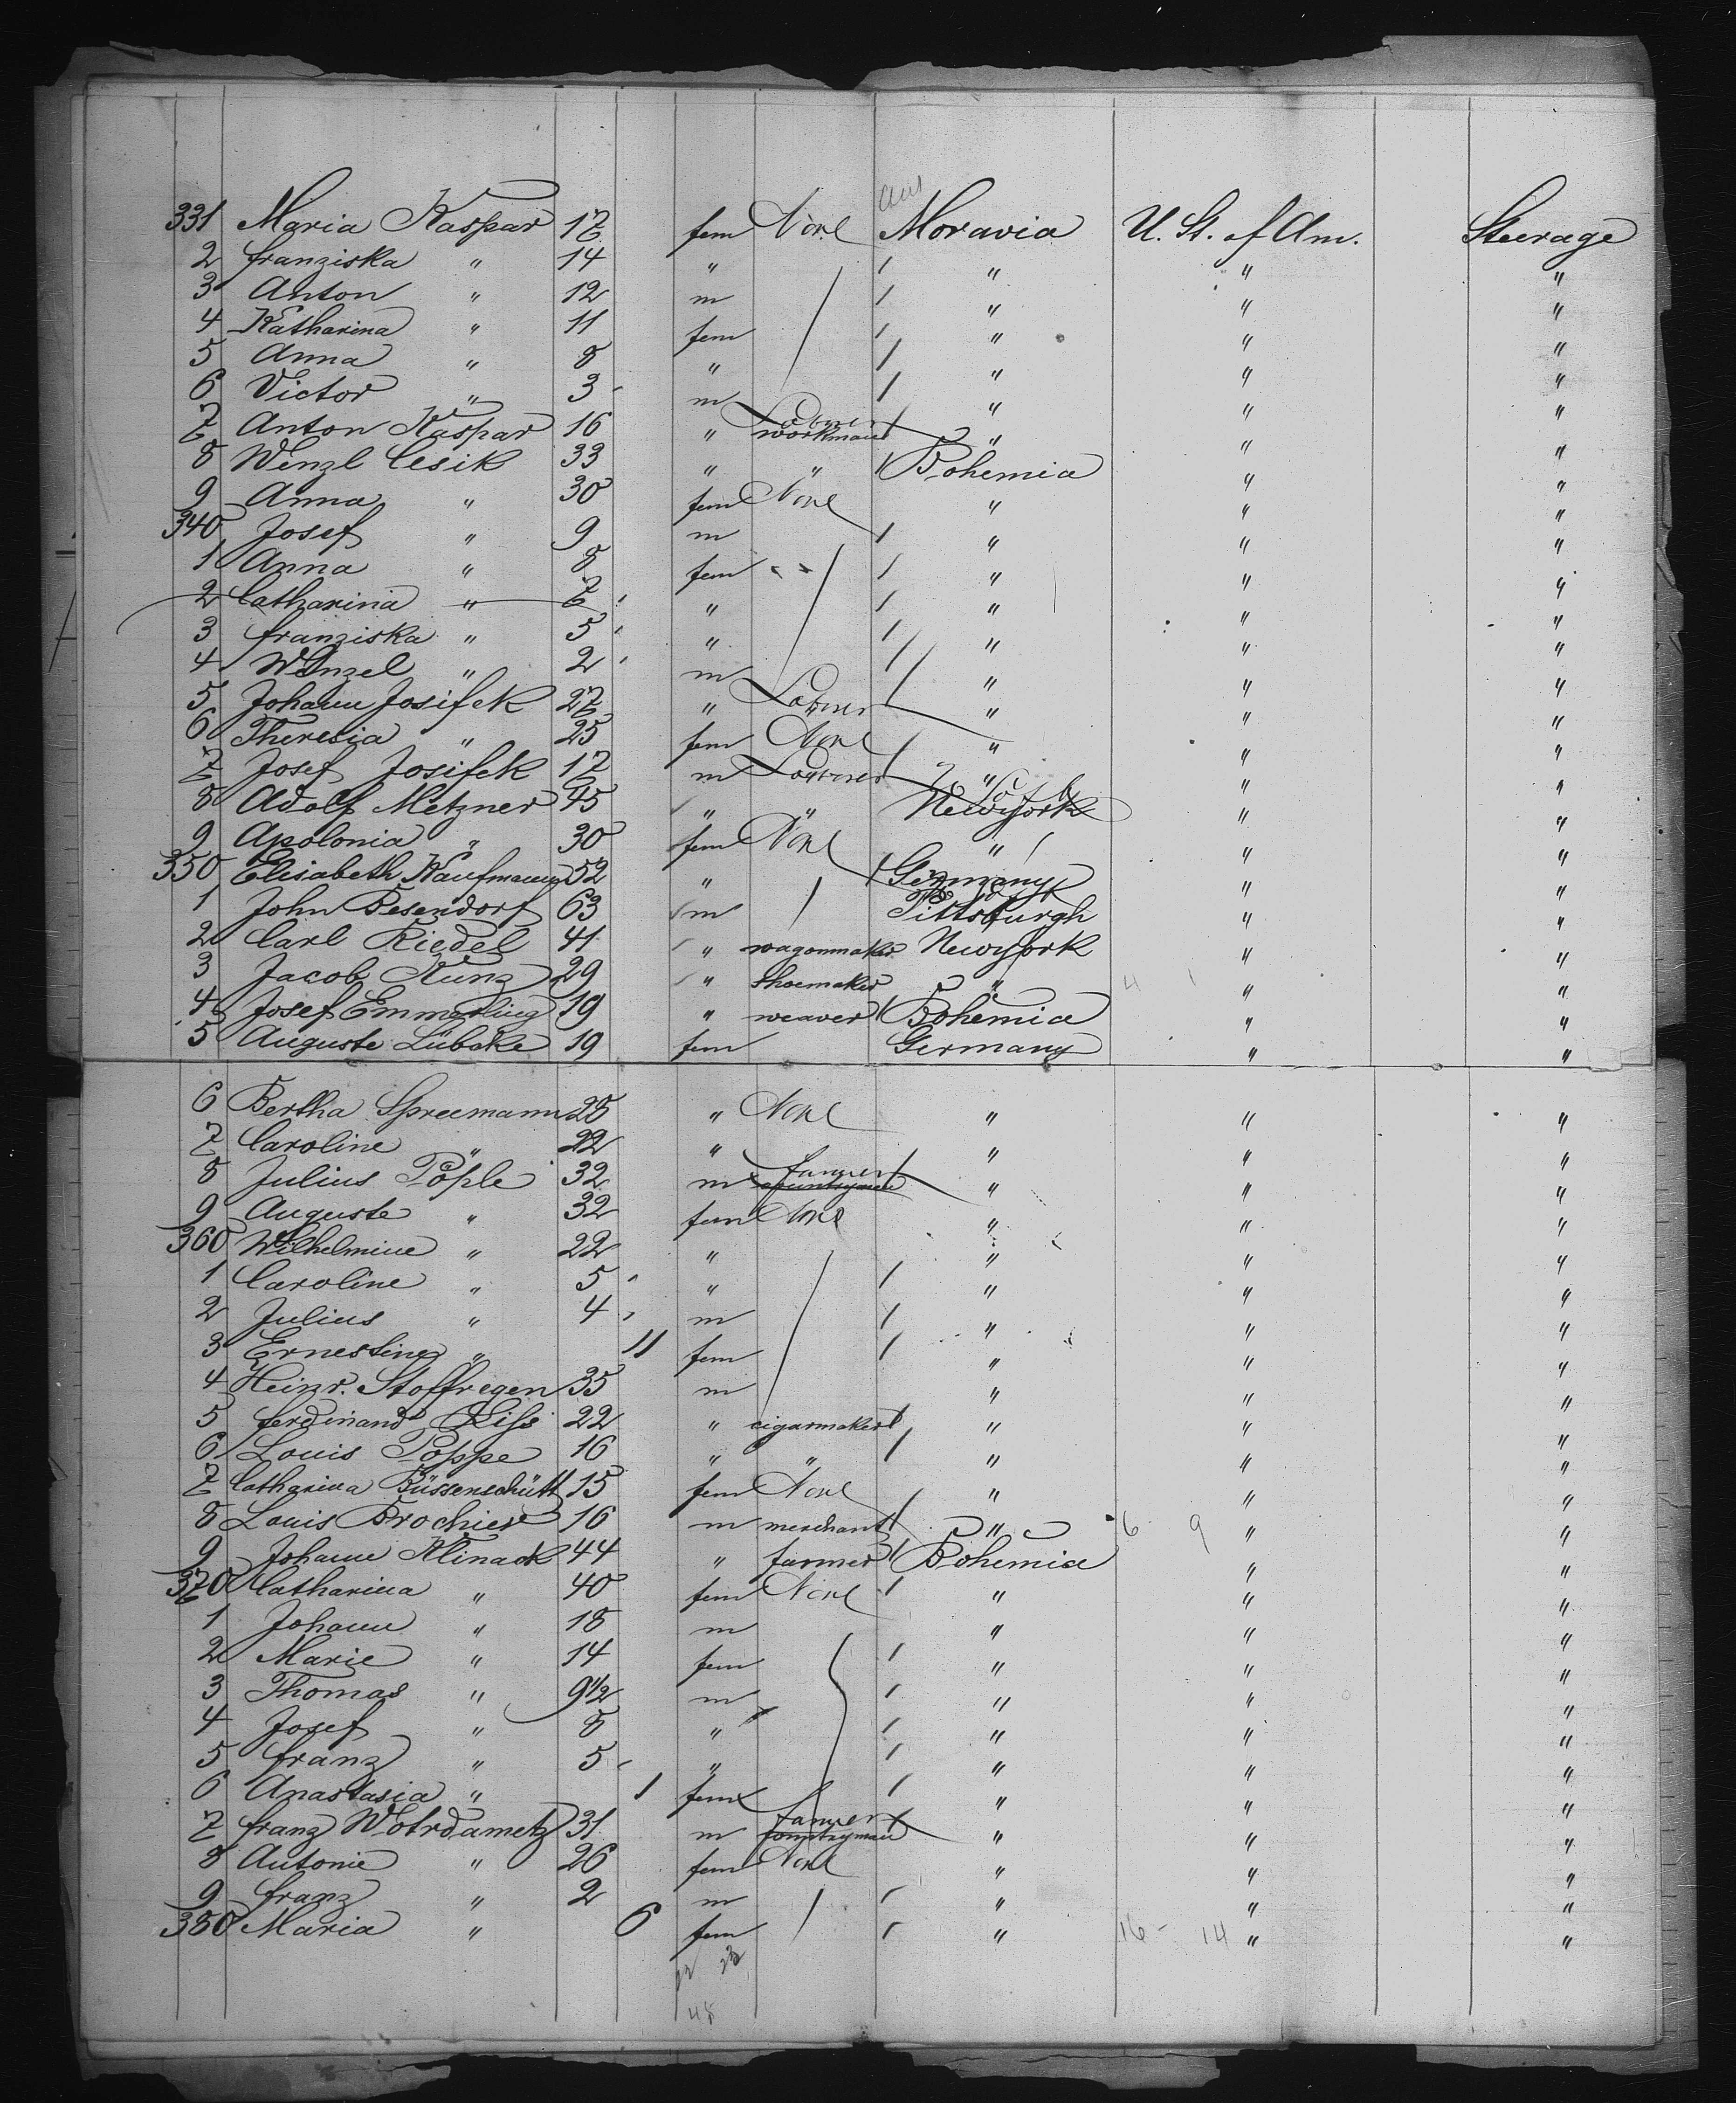 aus
331 Maria Kaspar 17 fem None Moravia U. St. of Am. Steerage
2 Franziska " 14 " " " "
3 Anton " 12 m " " "
4 Katharina " 11 fem " " "
5 Anna " 8 " " " "
6 Victor " 3 m " " "
7 Anton Kaspar 16 " Laborer workman " " "
8 Wenzl Cesik 33 " " Bohemia " "
9 Anna " 30 fem None " " "
340 Josef " 9 m " " "
1 Anna " 8 fem " " "
2 Catharina " 7 " " " "
3 Franziska " 5 " " " "
4 Wenzel " 2 m " " "
5 Johann Josifek 27 " Laborer " " "
6 Theresia " 25 fem None " " "
7 Josef Josifek 17 m Laborer " " "
8 Adolf Metzner 45 " " Newyork " "
9 Apolonia " 30 fem None " " "
350 Elisabeth Kaufmann 52 " Germany " "
1 John Besendorf 63 m Pittsburgh " "
2 Carl Riedel 41 " wagonmaker Newyork " "
3 Jacob Kunz 29 " Shoemaker " 4 1 " "
4 Josef Emmerling 19 " weaver Bohemia " "
5 Auguste Lübcke 19 fem Germany " "
6 Bertha Spreemann 28 " None " " "
7 Caroline " 22 " " " "
8 Julius Pöple 32 m farmer countryman " " "
9 Auguste " 32 fem None " " "
360 Wilhelmine " 22 " " " "
1 Caroline " 5 " " " "
2 Julius " 4 m " " "
3 Ernestine " 11 fem " " "
4 Heinr. Stoffregen 35 m " " "
5 Ferdinand 22 " cigarmaker " " "
6 Louis Poppe 16 " " " " "
7 Catharina Büssenschütt 15 fem None " " "
8 Louis Brochier 16 m merchant " 6 9 " "
9 Johann Klinack 44 " farmer Bohemia " "
370 Catharina " 40 fem None " " "
1 Johann " 18 m " " "
2 Marie " 14 fem " " "
3 Thomas " 9 1/2 m " " "
4 Josef " 8 " " " "
5 Franz " 5 " " " "
6 Anastasia " 1 fem " " "
7 Franz Wotrdametz 31 m farmer countryman " " "
8 Antonie " 26 fem None " " "
9 Franz " 2 m " " "
380 Maria " 6 fem " 16 - 14 " "
22 23
48